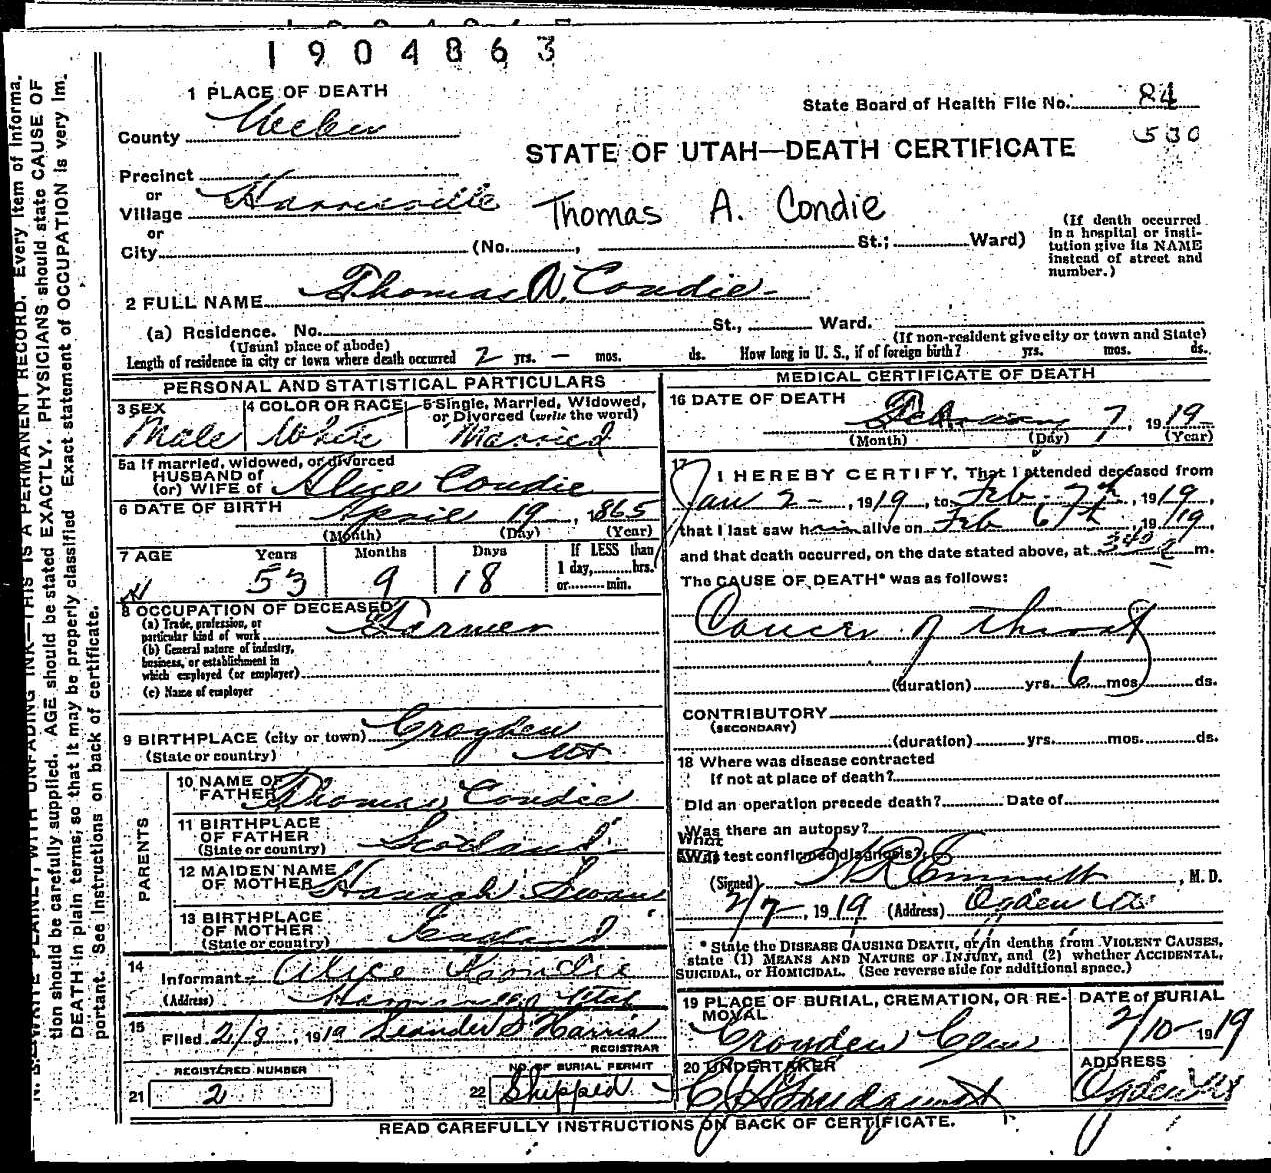 1904863
1 PLACE OF DEATH
State Board of Health File No. 84
County Weber
530
STATE OF UTAH—DEATH CERTIFICATE
Precinct
or
Village Harrisville
Thomas A. Condie
or
City (No. , St.; Ward)
(If death occurred in a hospital or institution give its NAME instead of street and number.)
2 FULL NAME Thomas A. Condie
(a) Residence. No. St., Ward.
(Usual place of abode) (If non-resident give city or town and State)
Length of residence in city or town where death occurred 2 yrs. — mos. ds. How long in U. S., if of foreign birth? yrs. mos. ds.
PERSONAL AND STATISTICAL PARTICULARS
3 SEX 4 COLOR OR RACE 5 Single, Married, Widowed, or Divorced (write the word)
Male White Married
5a If married, widowed, or divorced
HUSBAND of
(or) WIFE of Alice Condie
6 DATE OF BIRTH April 19, 1865
(Month) (Day) (Year)
7 AGE Years Months Days If LESS than
1 day, hrs.
53 9 18 or min.
8 OCCUPATION OF DECEASED
(a) Trade, profession, or
particular kind of work Farmer
(b) General nature of industry,
business, or establishment in
which employed (or employer)
(c) Name of employer
9 BIRTHPLACE (city or town) Croyden
(State or country) Ut
PARENTS
10 NAME OF
FATHER Thomas Condie
11 BIRTHPLACE
OF FATHER
(State or country) Scotland
12 MAIDEN NAME
OF MOTHER Hannah Swann
13 BIRTHPLACE
OF MOTHER
(State or country) England
14
Informant Alice Condie
(Address) Harrisville Utah
15 Filed 2/8, 1919 Leander S. Harris
REGISTRAR
REGISTERED NUMBER
21 2
NO. OF BURIAL PERMIT
22 Shipped
MEDICAL CERTIFICATE OF DEATH
16 DATE OF DEATH
February 7, 1919
(Month) (Day) (Year)
17
I HEREBY CERTIFY, That I attended deceased from
Jan 2, 1919, to Feb 7th, 1919,
that I last saw him alive on Feb 6th, 1919,
and that death occurred, on the date stated above, at m.
The CAUSE OF DEATH* was as follows:
Cancer of throat
(duration) yrs. 6 mos. ds.
CONTRIBUTORY
(SECONDARY)
(duration) yrs. mos. ds.
18 Where was disease contracted
if not at place of death?
Did an operation precede death? Date of
Was there an autopsy?
What test confirmed diagnosis?
(Signed) Emmett, M. D.
2/7, 1919 (Address) Ogden Ut
* State the DISEASE CAUSING DEATH, or in deaths from VIOLENT CAUSES,
state (1) MEANS AND NATURE OF INJURY, and (2) whether ACCIDENTAL,
SUICIDAL, or HOMICIDAL. (See reverse side for additional space.)
19 PLACE OF BURIAL, CREMATION, OR REMOVAL DATE of BURIAL
Croyden Cem 2/10 1919
20 UNDERTAKER ADDRESS
Ogden Ut
READ CAREFULLY INSTRUCTIONS ON BACK OF CERTIFICATE.
N. B. WRITE PLAINLY, WITH UNFADING INK—THIS IS A PERMANENT RECORD. Every item of informa-
tion should be carefully supplied. AGE should be stated EXACTLY. PHYSICIANS should state CAUSE OF
DEATH in plain terms, so that it may be properly classified. Exact statement of OCCUPATION is very im-
portant. See instructions on back of certificate.